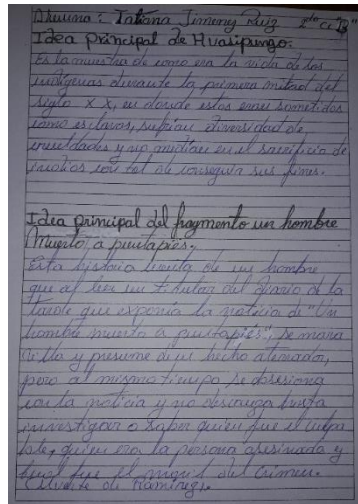 Alumna: Tatiana Jimenez Ruiz 2do Ci "B"
Idea Principal de Huasipungo.
Es la muestra de como era la vida de los
indígenas durante la primera mitad del
siglo XX, en donde estos eran sometidos
como esclavos, sufrían diversidad de
crueldades y no medían en el sacrificio de
indios con tal de conseguir sus fines.
Idea principal del fragmento un hombre
Muerto a puntapiés.
Esta historia cuenta de un hombre
que al leer un titular del diario de la
tarde que exponía la noticia de "Un
hombre muerto a puntapiés", se mara
villa y presume de un hecho
pero al mismo tiempo se obsesiona
con la noticia y no descansa hasta
investigar o saber quien fue el culpa
ble, quien era la persona asesinada y
cual fue el movil del crimen.
(Muerte de Ramírez).